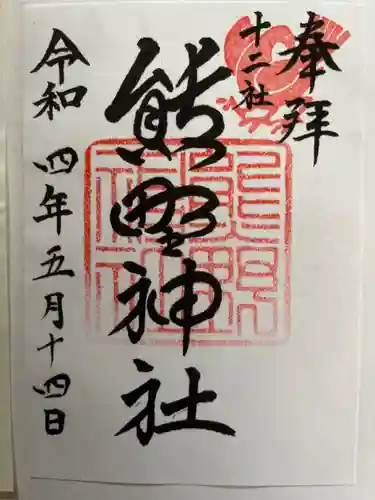 奉拝
十二社
熊野神社
令和四年五月十四日